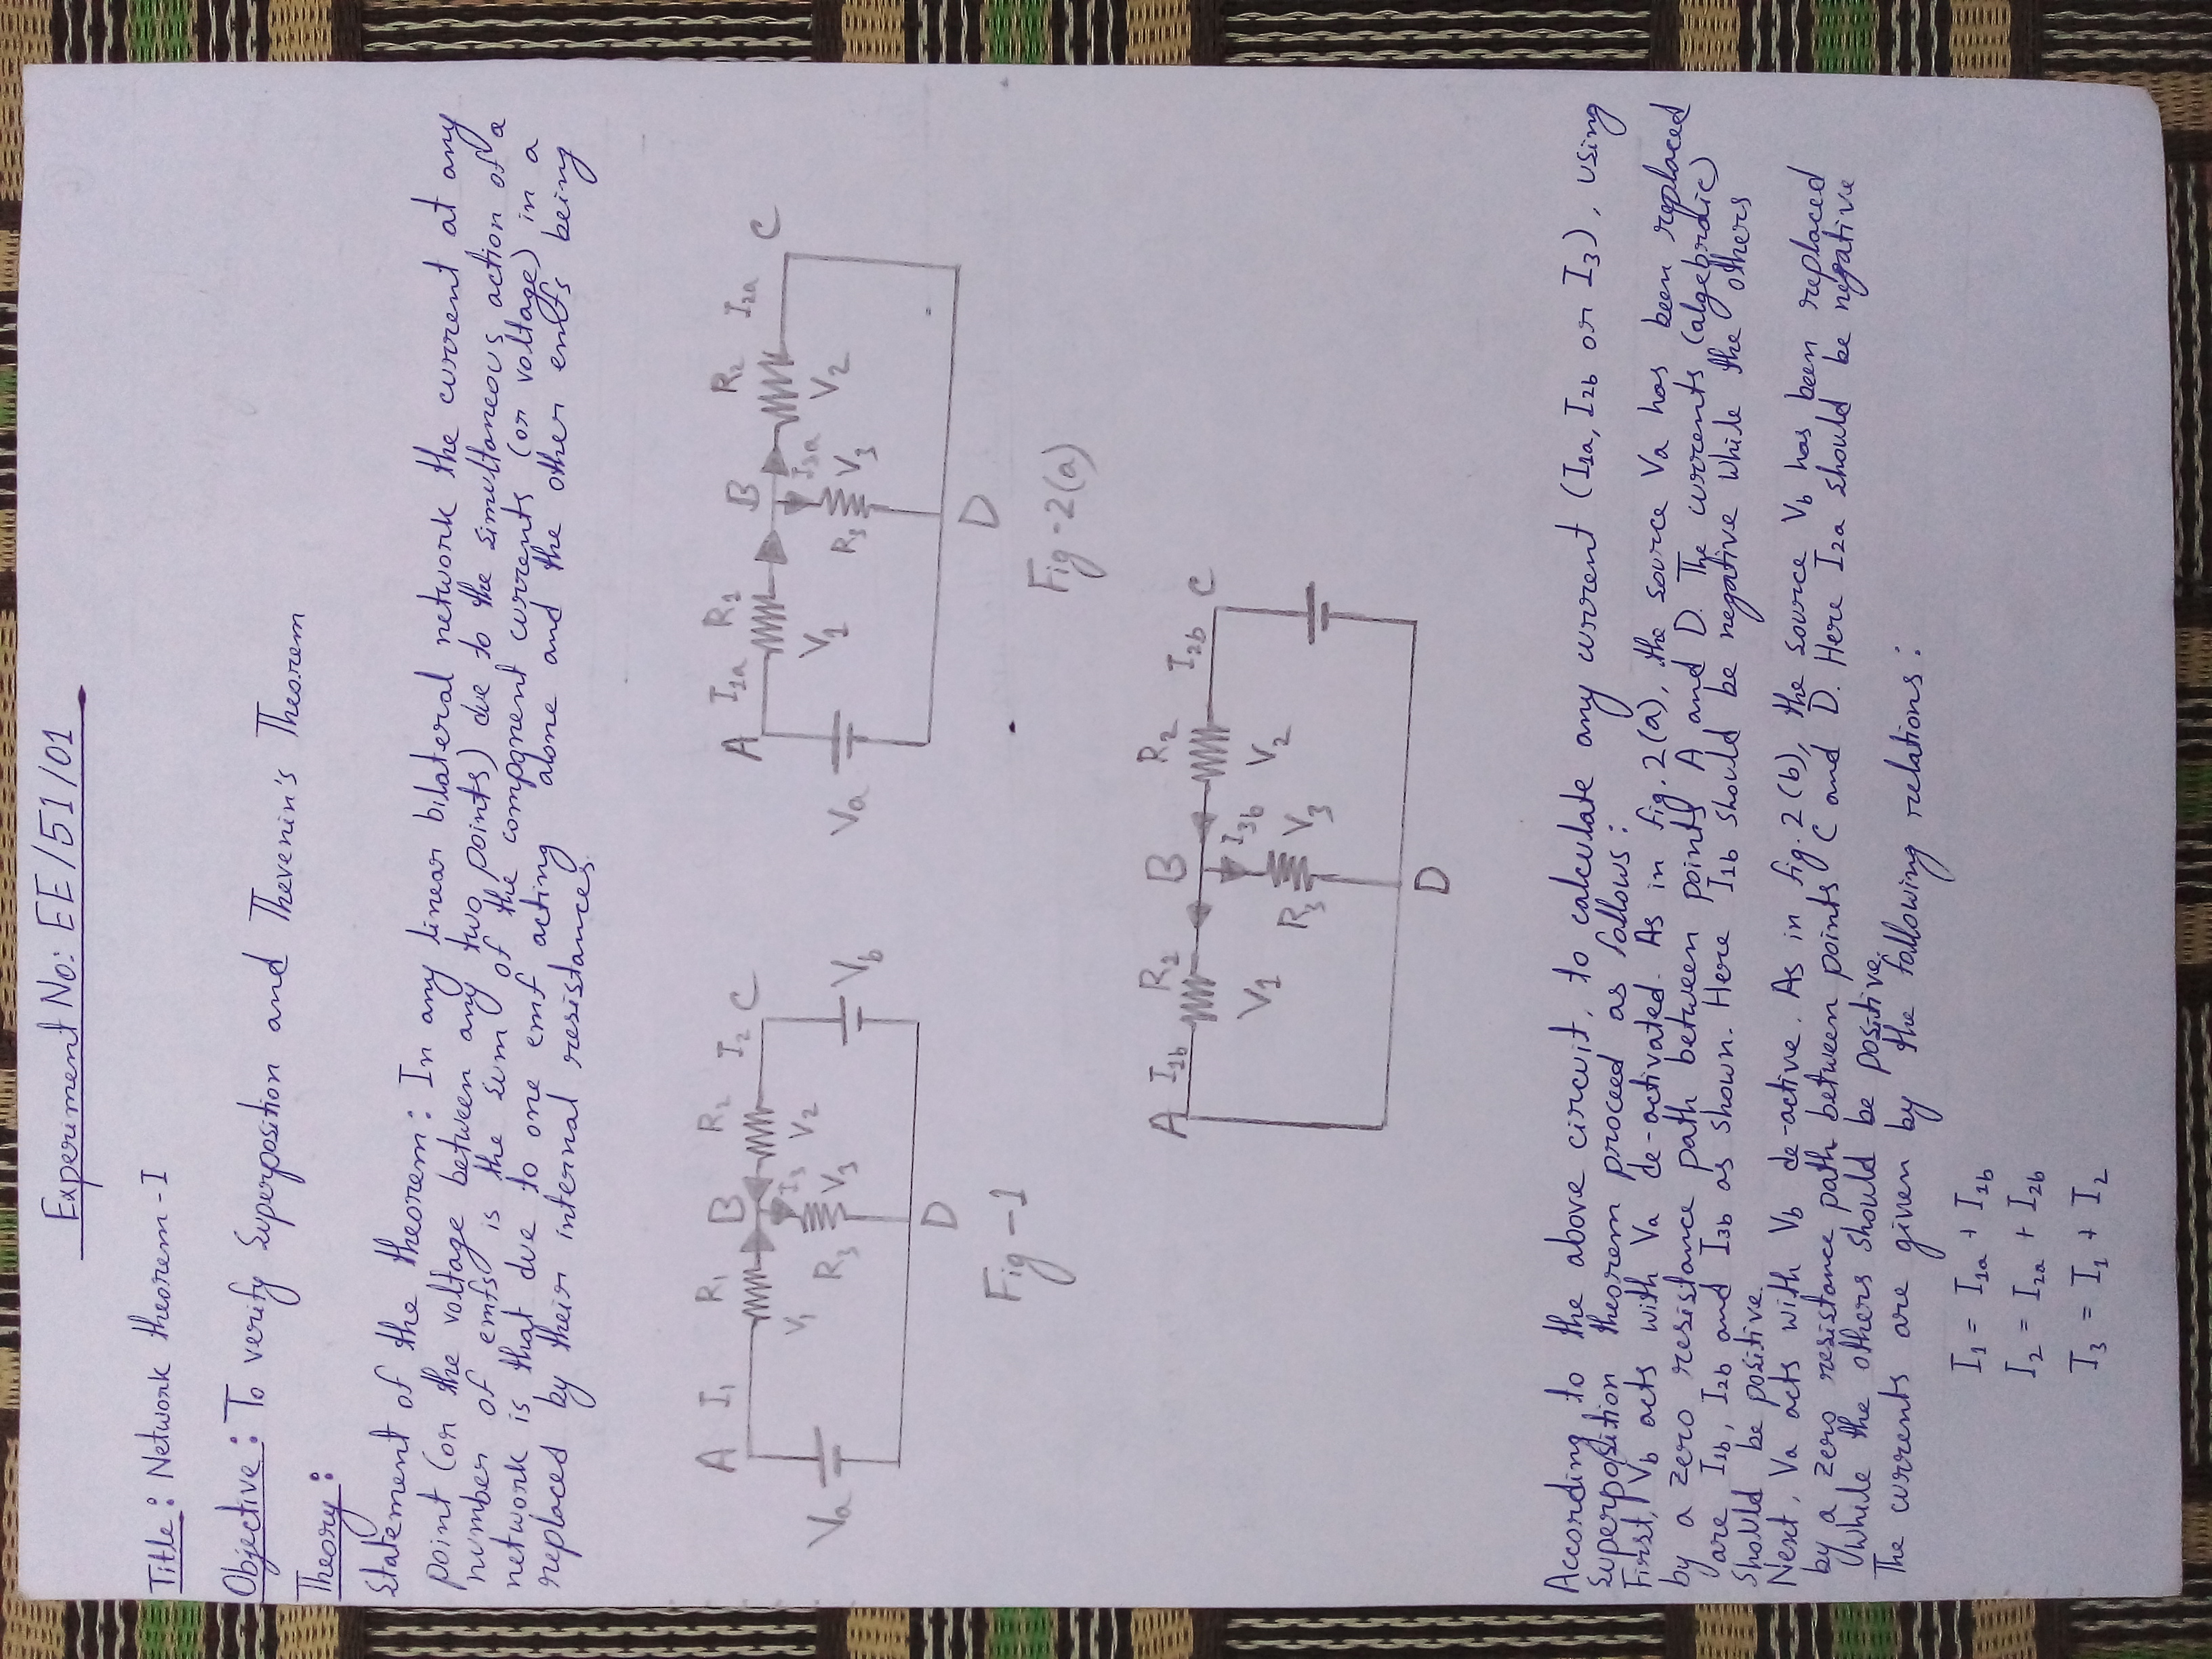 Experiment No: EE/51/01
Title: Network theorem-I
Objective: To verify Superposition and Thevenin's Theorem
Theory:
Statement of the theorem: In any linear bilateral network the current at any
point (or the voltage between any two points) due to the simultaneous action of a
number of emfs is the sum of the component currents (or voltage) in a
network is that due to one emf acting alone and the other emfs being
replaced by their internal resistances.
A I₁ R₁ B R₂ I₂ C
V₁ I₃ V₂
Va R₃ V₃ Vb
D
Fig-1
A I1a R1 B R2 I2a C
V1 I3a V2
Va R3 V3
D
Fig-2(a)
A I1b R2 B R2 I2b C
V1 I3b V2
R3 V3
D
According to the above circuit, to calculate any current (I1a, I2b or I3), using
Superposition theorem proceed as follows:
First, Vb acts with Va de-activated. As in fig. 2(a), the source Va has been replaced
by a zero resistance path between points A and D. The currents (algebraic)
are I1b, I2b and I3b as shown. Here I1b should be negative while the others
should be positive.
Next, Va acts with Vb de-active. As in fig. 2(b), the source Vb has been replaced
by a zero resistance path between points C and D. Here I2a should be negative
while the others should be positive.
The currents are given by the following relations:
I1 = I1a + I1b
I2 = I2a + I2b
I3 = I1 + I2